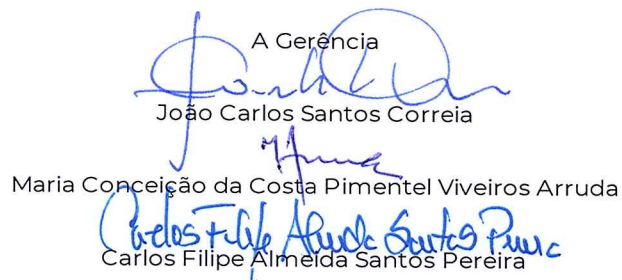 A Gerência
João Carlos Santos Correia
Maria Conceição da Costa Pimentel Viveiros Arruda
Carlos Filipe Almeida Santos
Carlos Filipe Almeida Santos Pereira